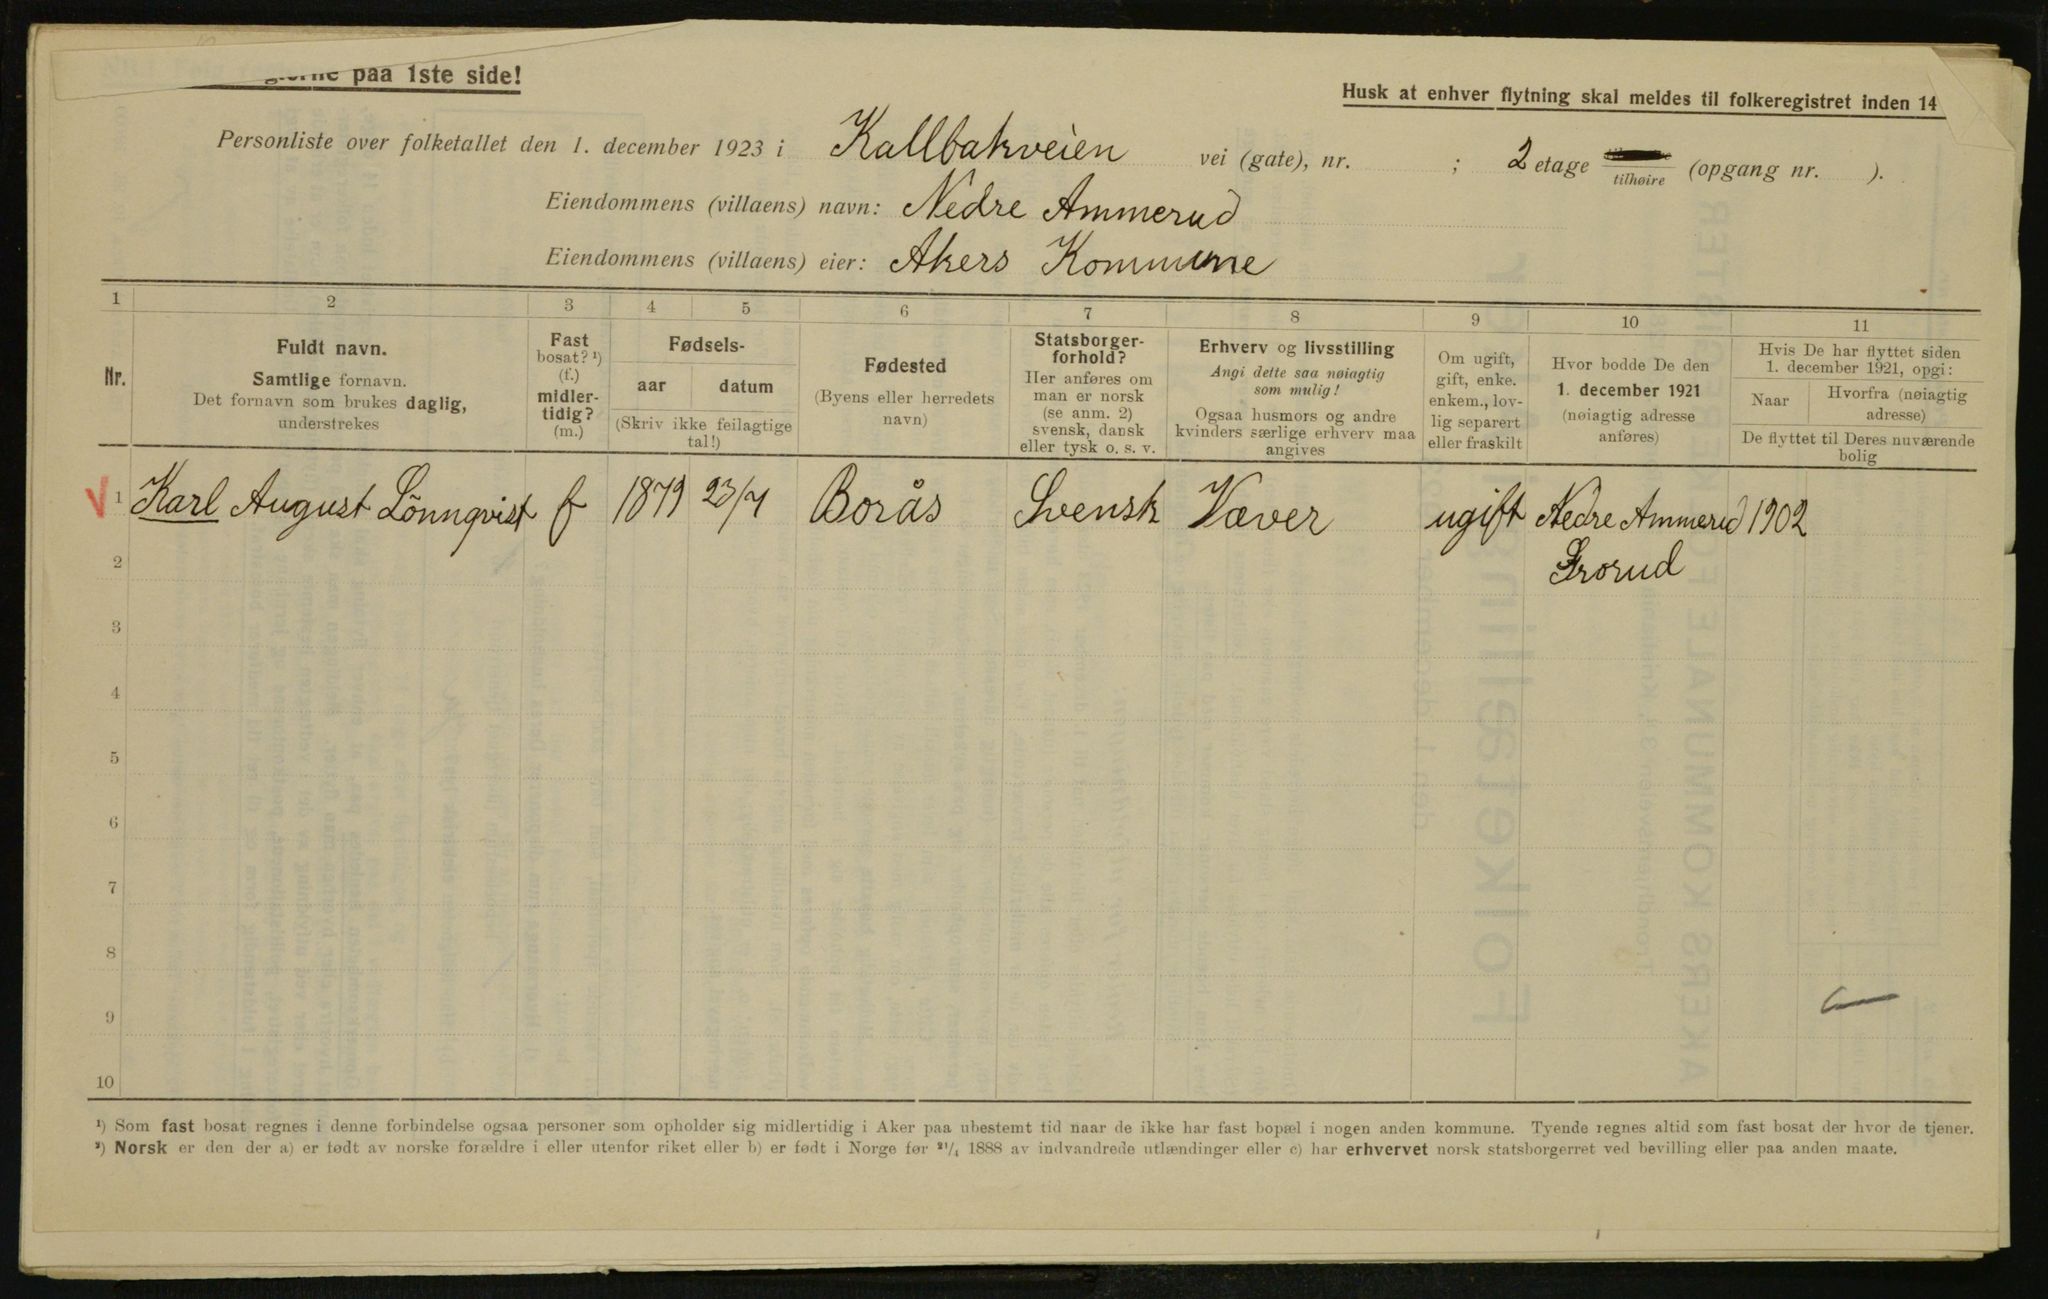 paa 1ste side!
Husk at enhver flytning skal meldes til folkeregistret inden 14
Personliste over folketallet den 1. december 1923 i Kallbakveien vei (gate), nr. ; 2 etage tilhøire (opgang nr. ).
Eiendommens (villaens) navn: Nedre Ammerud
Eiendommens (villaens) eier: Akers Kommune
1 2 3 4 5 6 7 8 9 10 11
Nr.
Fuldt navn.
Samtlige fornavn.
Det fornavn som brukes daglig,
understrekes
Fast
bosat? ¹)
(f.)
midler-
tidig?
(m.)
Fødsels-
aar datum
(Skriv ikke feilagtige
tal!)
Fødested
(Byens eller herredets
navn)
Statsborger-
forhold?
Her anføres om
man er norsk
(se anm. 2)
svensk, dansk
eller tysk o. s. v.
Erhverv og livsstilling
Angi dette saa nøiagtig
som mulig!
Ogsaa husmors og andre
kvinders særlige erhverv maa
angives
Om ugift,
gift, enke.
enkem., lov-
lig separert
eller fraskilt
Hvor bodde De den
1. december 1921
(nøiagtig adresse
anføres)
Hvis De har flyttet siden
1. december 1921, opgi:
Naar
Hvorfra (nøiagtig
adresse)
De flyttet til Deres nuværende
bolig
1 Karl August Lönnqvist f 1879 23/7 Borås Svensk Væver ugift Nedre Ammerud 1902
2 Grorud
3
4
5
6
7
8
9
10
¹) Som fast bosat regnes i denne forbindelse ogsaa personer som opholder sig midlertidig i Aker paa ubestemt tid naar de ikke har fast bopæl i nogen anden kommune. Tyende regnes altid som fast bosat der hvor de tjener.
²) Norsk er den der a) er født av norske forældre i eller utenfor riket eller b) er født i Norge før ²¹/₄ 1888 av indvandrede utlændinger eller c) har erhvervet norsk statsborgerret ved bevilling eller paa anden maate.